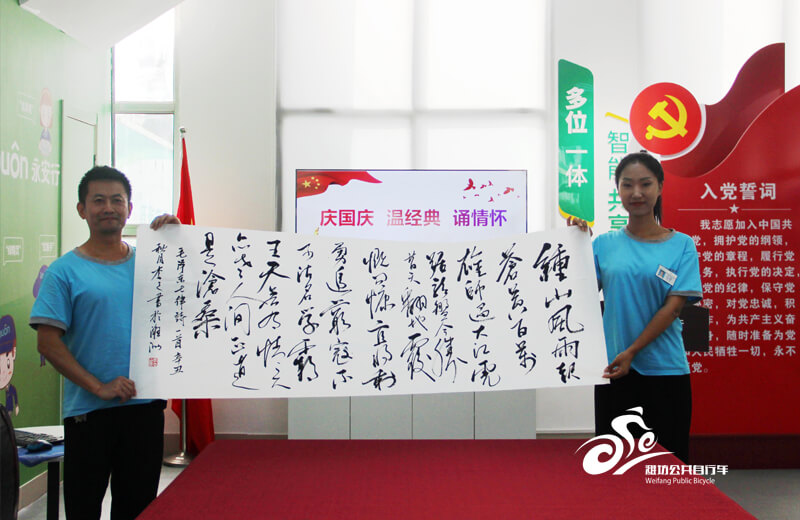 uōn 永安行
多位一体
智能
共享
庆国庆 温经典 诵情怀
鍾山風雨起
蒼黃百萬
雄師過大江虎
踞龍盤今勝
昔天翻地覆
慨而慷宜將剩
勇追窮寇不
可沽名學霸
王天若有情天
亦老人間正道
是滄桑
毛澤東七律詩一首辛丑
秋月李書於濰坊
入党誓词
我志愿加入中国共
党，拥护党的纲领，
党的章程，履行党
务，执行党的决定，
党的纪律，保守党
密，对党忠诚，积
作，为共产主义奋
身，随时准备为党
人民牺牲一切，永不
党。
潍坊公共自行车
Weifang Public Bicycle